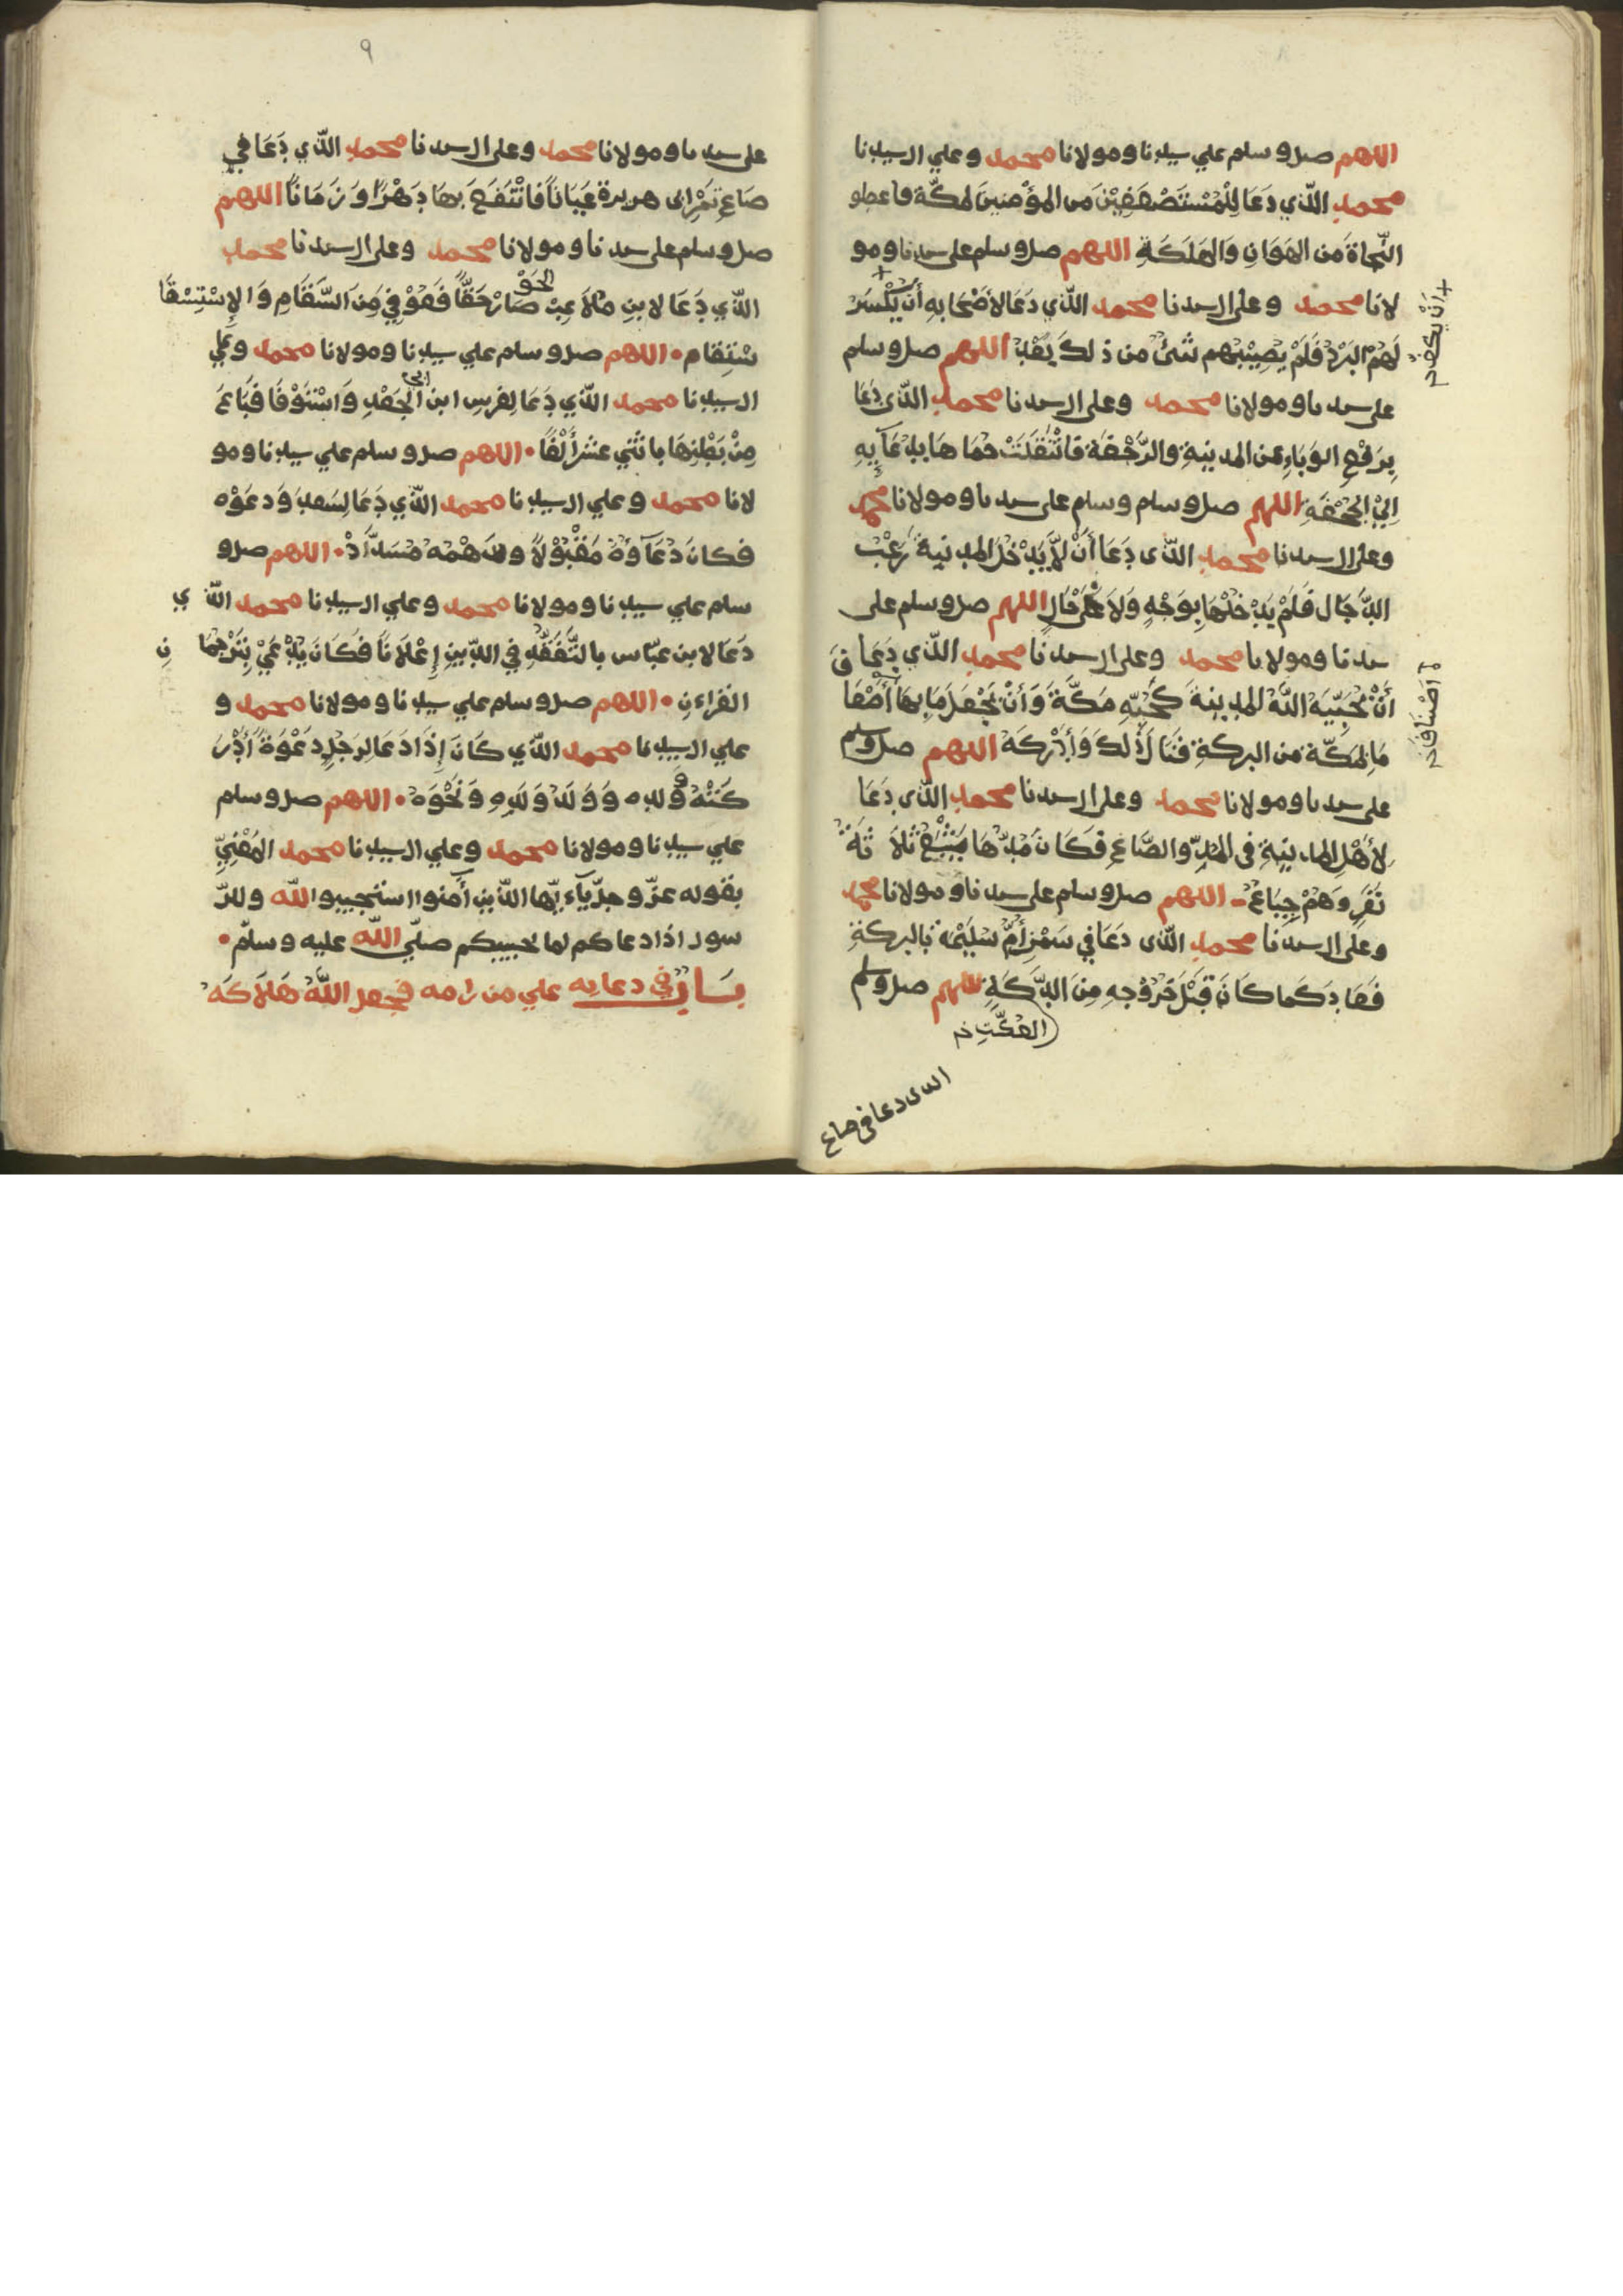 اللهم صل وسلم علي سيدنا ومولانا محمد وعلي ال سيدنا
محمد الذي دعا للمستضعفين من المؤمنين لمكة فاعطو
النجاة من الهوان والهلكة اللهم صل وسلم على سيدنا ومو
لانا محمد وعلى ال سيدنا محمد الذي دعا لأصحابه أن يكسر
لهم البرد فلم يصيبهم شئ من ذلك بعد اللهم صل وسلم
على سيدنا ومولانا محمد وعلى ال سيدنا محمد الذي دعا
برفع الوباء عن المدينة والرجفة فانتقلت حماها بدعآيه
الي الجحفة اللهم صل وسلم وسلم على سيدنا ومولانا محمد
وعلى ال سيدنا محمد الذى دعا أن لا يدخل المدينة رعب
الدجال فلم يدخلها بوجه ولا على حال اللهم صل وسلم على
سيدنا ومولانا محمد وعلى ال سيدنا محمد الذي دعا
أن يحببه الله المدينة كحبه مكة وأن يجعل ما بها أضعا
ما لمكة من البركة فنال ذلك وأدركه اللهم صل وسلم
على سيدنا ومولانا محمد وعلى ال سيدنا محمد الذى دعا
لأهل المدينة فى المد والصاع فكان مدها يشبع ثلاثة
نفر وهم جياع اللهم صل وسلم على سيدنا ومولانا محمد
وعلى ال سيدنا محمد الذى دعا في سمن أم سليم بالبركة
فعاد كما كان قبل خروجه من اللهم صل وسلم
العكة
الذى دعا فى صاع
٩
على سيدنا ومولانا محمد وعلى ال سيدنا محمد الذي دعا في
صاع تمر ابى هريرة عيانا فانتفع بها دهرا وزمانا اللهم
صل وسلم على سيدنا ومولانا محمد وعلى ال سيدنا محمد
الذي دعا لابن ملاعب صار حقا فعوفي من السقام والاستسقا
اللهم صل وسلم علي سيدنا ومولانا محمد وعلي
ال سيدنا محمد الذي دعا لفرس ابن ابي الجعد واستوفا فباع
من بطنها باثني عشر ألفا اللهم صل وسلم علي سيدنا ومو
لانا محمد وعلي ال سيدنا محمد الذي دعا لسعد ودعوه
فكان دعآوه مقبولا مسدد اللهم صل و
سلم علي سيدنا ومولانا محمد وعلي ال سيدنا محمد الذي
دعا لابن عباس بالتفقه في الدين إعلانا فكان يدعي بترجمان
القراءن اللهم صل وسلم علي سيدنا ومولانا محمد و
علي ال سيدنا محمد الذي كان إذا دعا لرجل دعوة أدر
كته وولده وولد ولده ونحوه اللهم صل وسلم
علي سيدنا ومولانا محمد وعلي ال سيدنا محمد المعني
بقوله عز وجل يآءيها الذين أمنوا استجيبوا لله وللر
سول اذا دعاكم لما يحييكم صلي الله عليه وسلم
في دعايه علي من رامه فجعل الله هلاكه